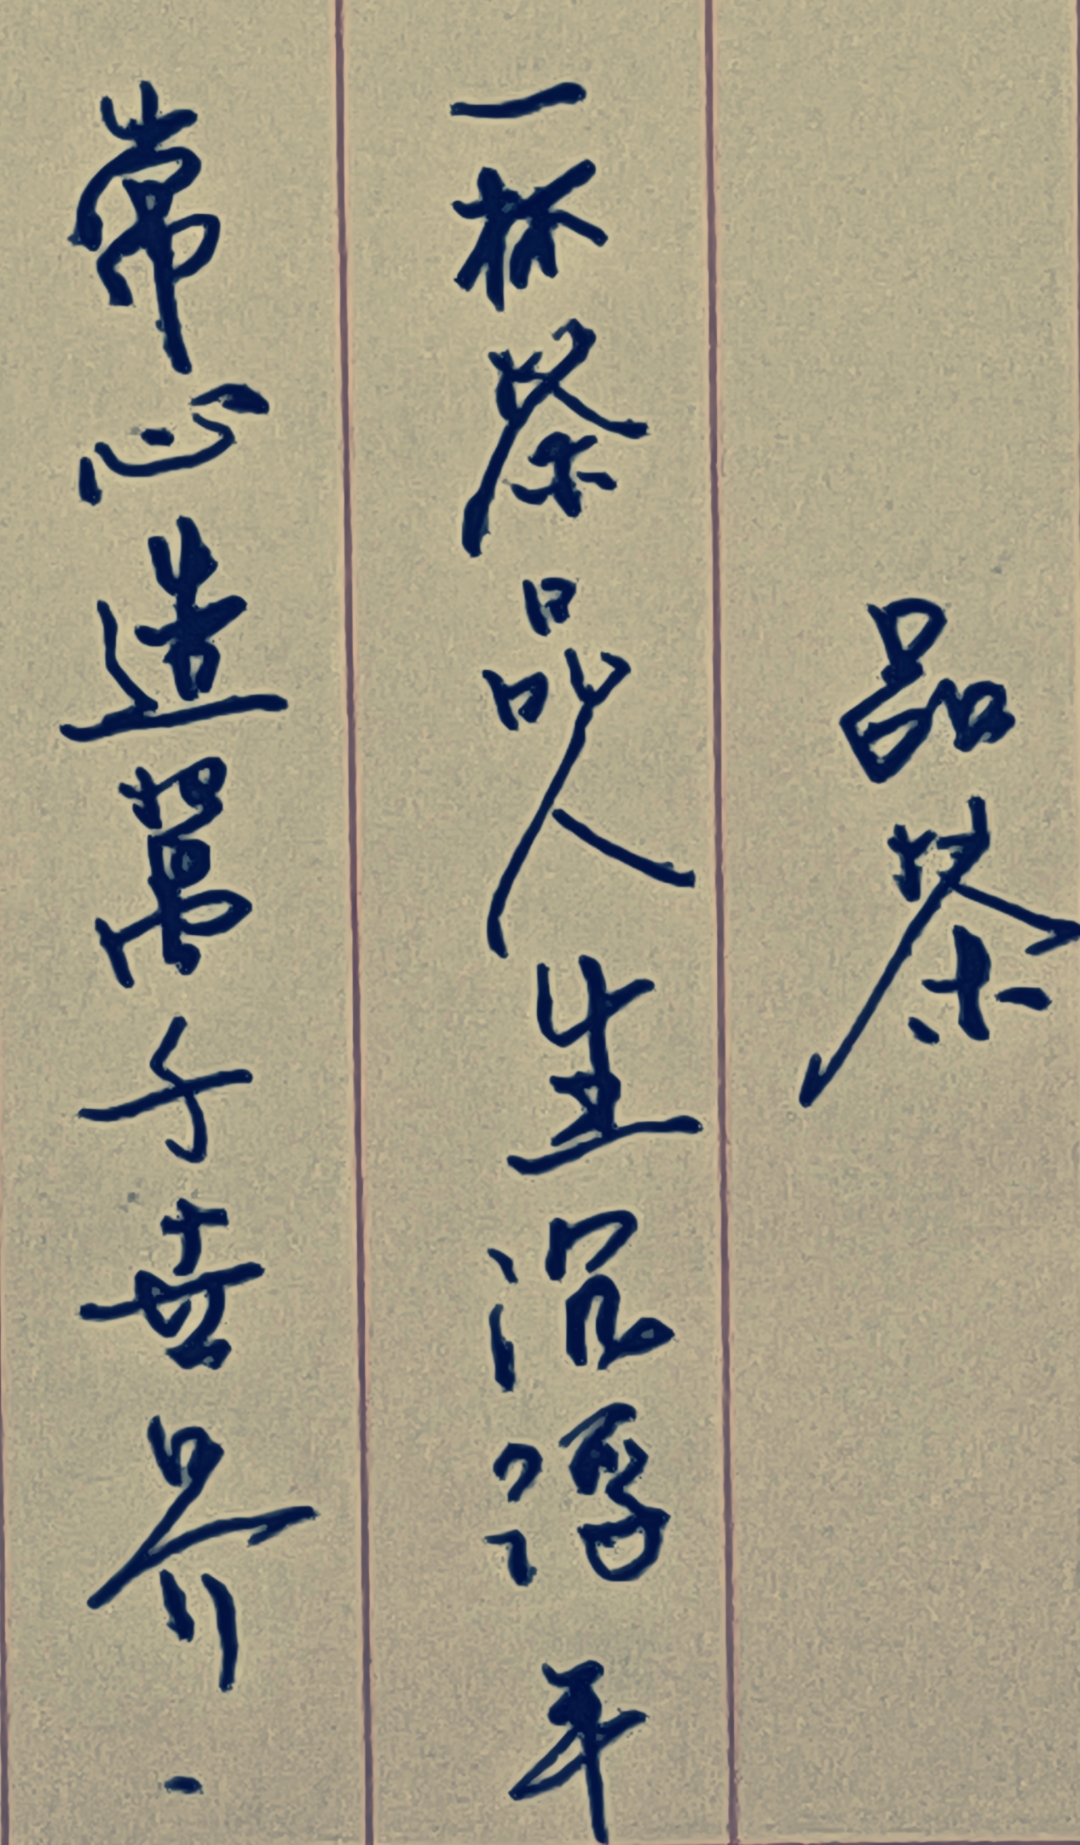 品茶
一杯茶品人生沉浮平
常心造萬千世界.